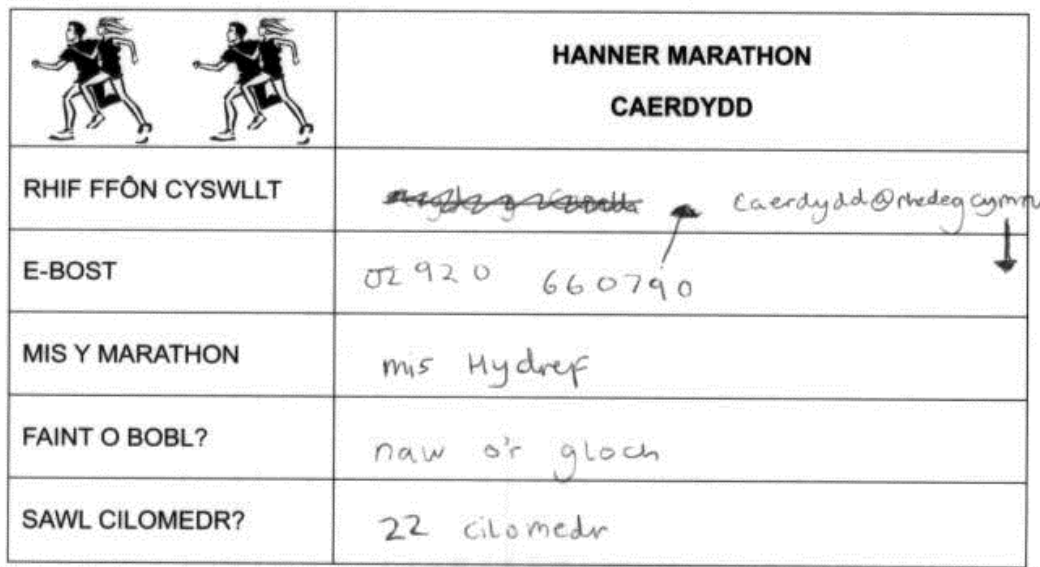 HANNER MARATHON
CAERDYDD
RHIF FFÔN CYSWLLT
caerdydd@rhedegcymru
E-BOST
02920 660790
MIS Y MARATHON
mis Hydref
FAINT O BOBL?
naw o'r gloch
SAWL CILOMEDR?
22 cilomedr